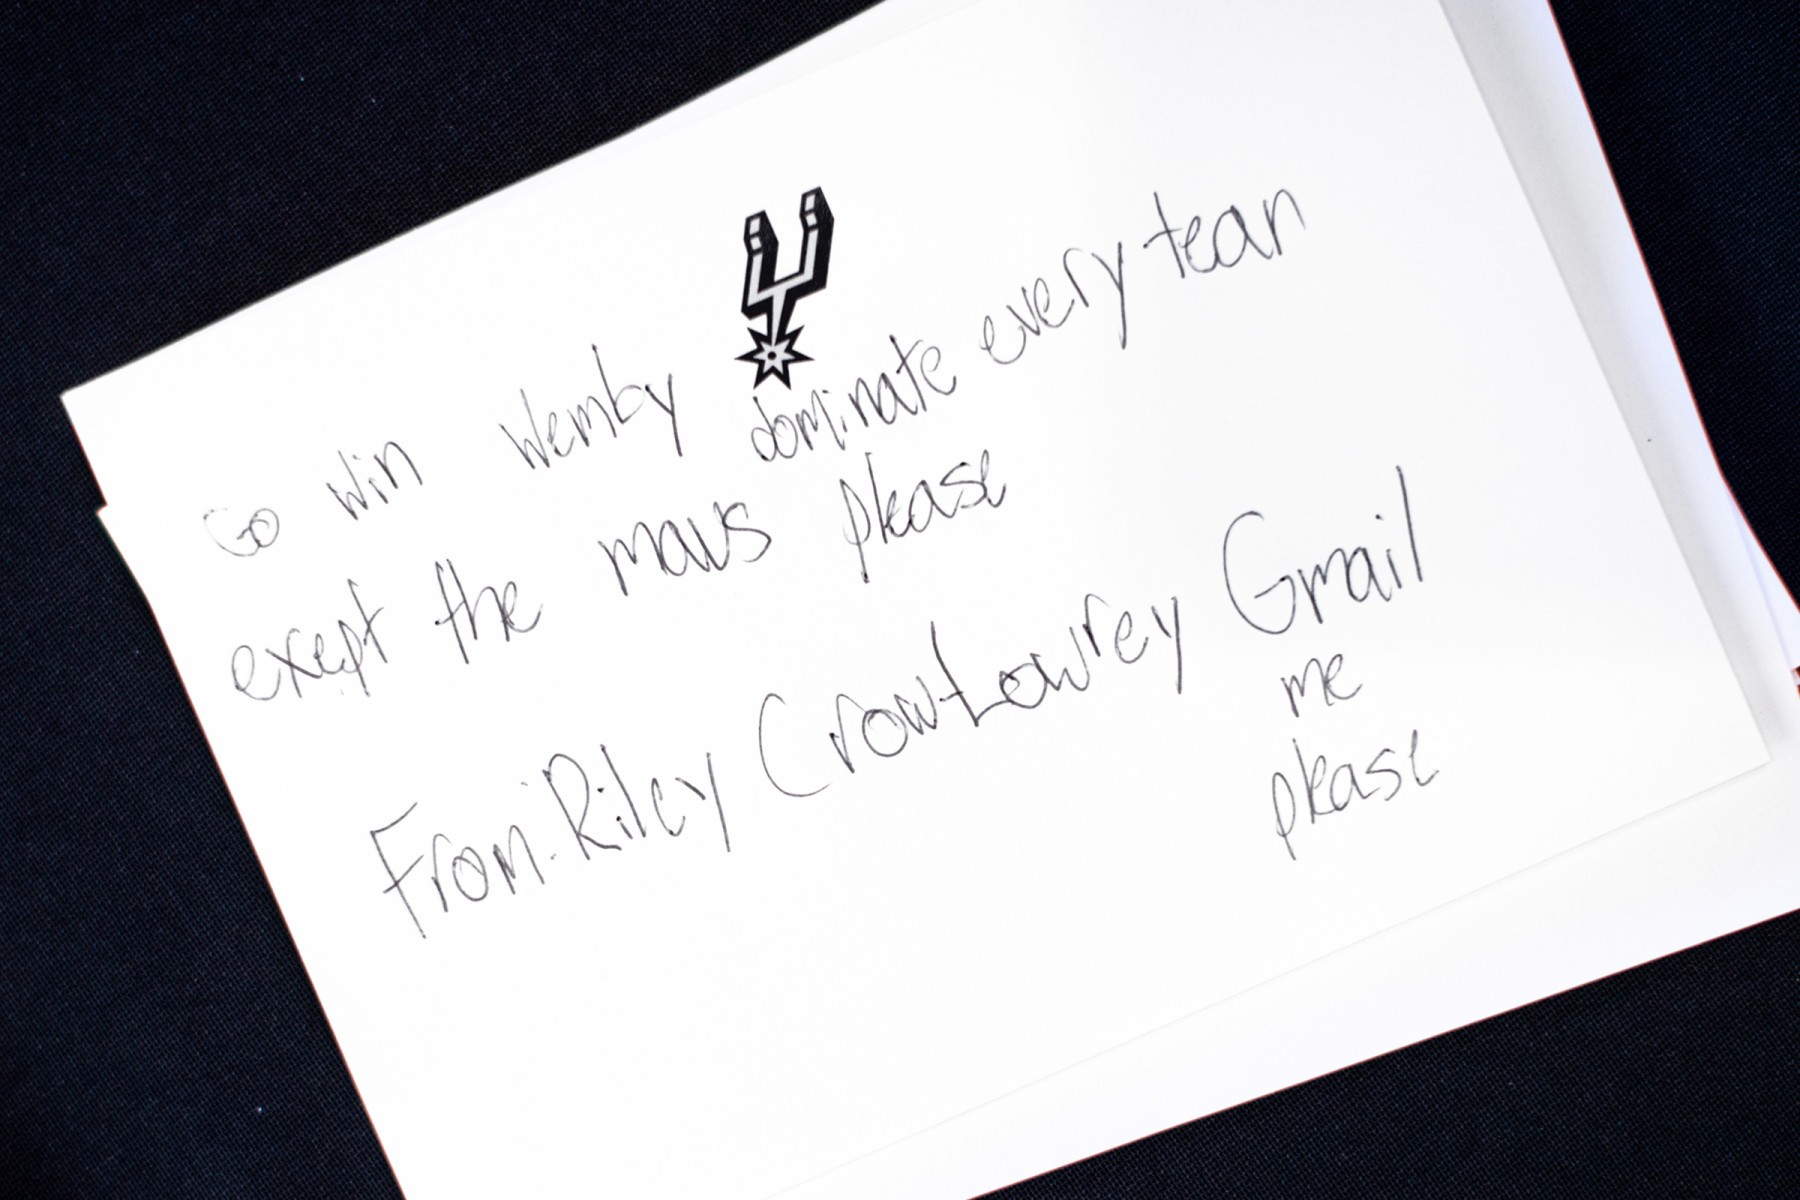 Go win Wemby dominate every tean
exept the mavs please
From: Riley Crow-Lowrey Gmail
me
please